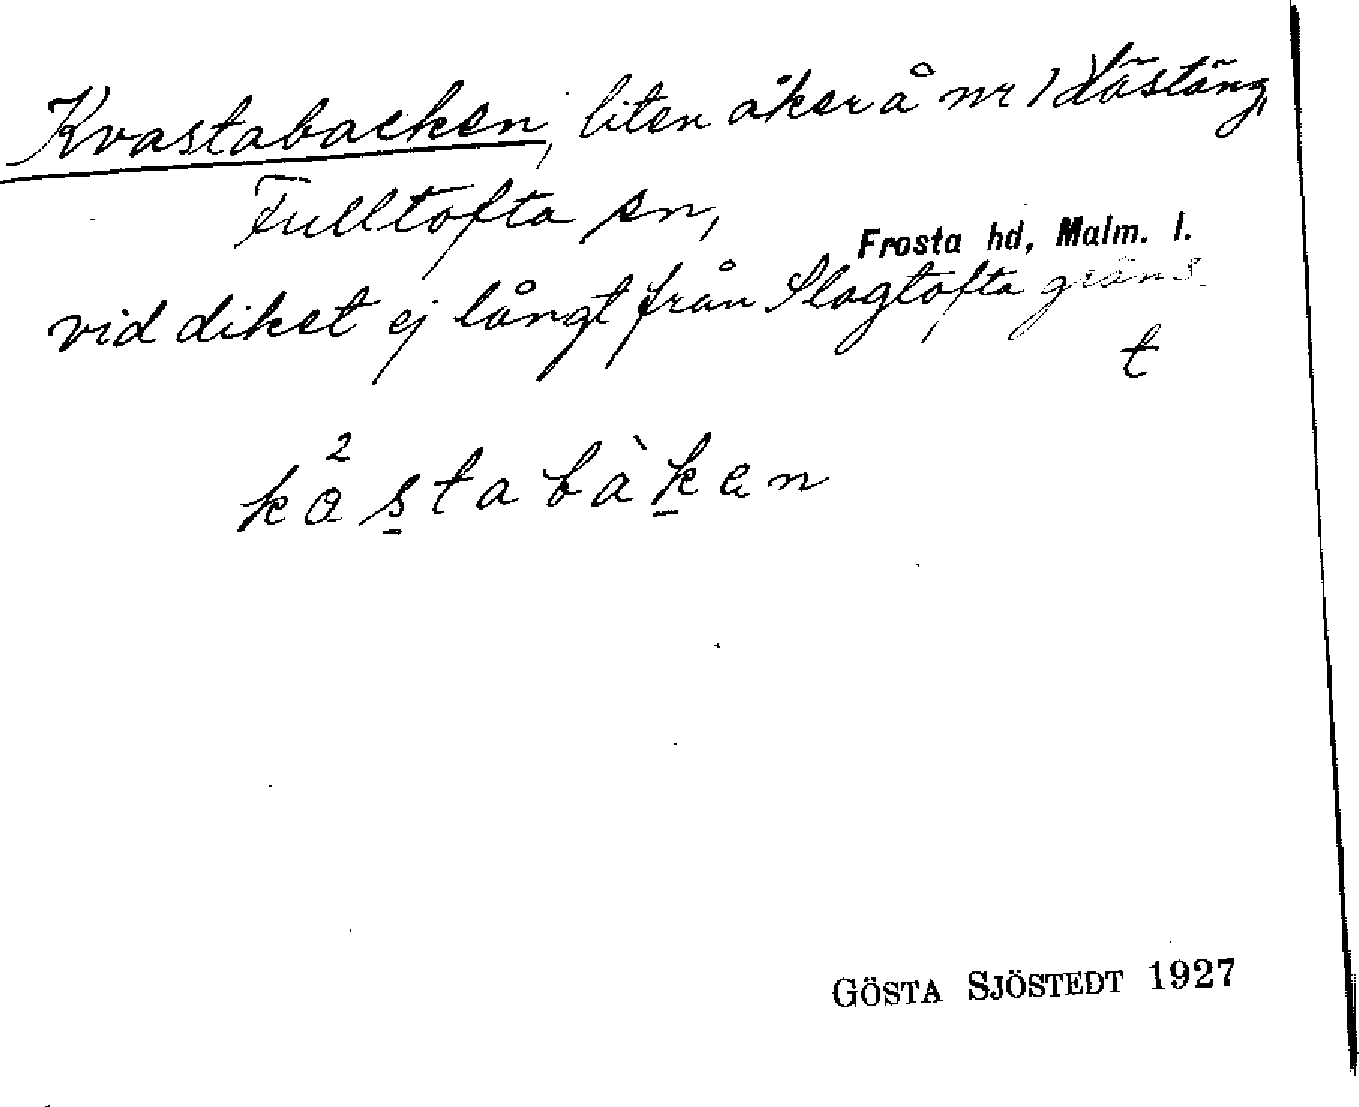 Kvastabacken, liten åker å nr 1 Hästäng,
Fulltofta sn,
Frosta hd, Malm. l.
vid diket ej långt från Slagtofta gräns.
t
2
kåstabàken
GÖSTA SJÖSTEDT 1927